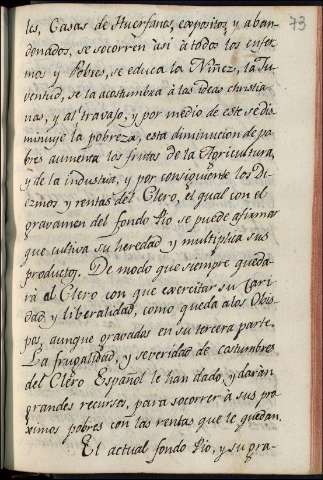 73
les, Casas de Huerfanos, expositos, y aban-
donados, se socorren asi à todos los enfer-
mos y Pobres, se educa la Niñez, la Ju-
ventud, se la acostumbra à las ideas christia-
nas, y al travajo, y por medio de este se dis-
minuye la pobreza, esta diminucion de po-
bres aumenta los frutos de la Agricultura,
y de la industria, y por consiguiente los Di-
ezmos y rentas del Clero, el qual con el
gravamen del fondo Pio se puede afirmar
que cultiva su heredad, y multiplica sus
productos. De modo que siempre queda-
rá al Clero con que exercitar su Cari-
dad, y liberalidad, como queda a los Obis-
pos, aunque gravados en su tercera parte.
La frugalidad, y severidad de costumbres
del Clero Español le han dado, y daràn
grandes recursos, para socorrer à sus pro-
ximos pobres con las rentas que le quedan.
El actual fondo Pio, y su gra-